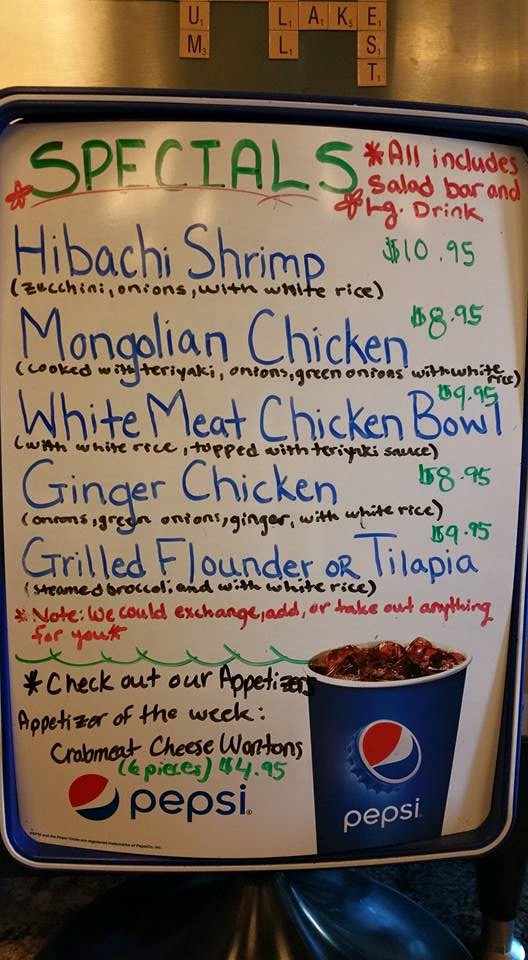 U L L A K5 E
M3 L S
T
SPECIALS
*All includes
Salad bar and
Lg. Drink
Hibachi Shrimp $10.95
(zucchini, onions, with white rice)
Mongolian Chicken $8.95
(cooked with teriyaki, onions, green onions with white rice)
White Meat Chicken Bowl $9.95
(with white rice, topped with teriyaki sauce)
Ginger Chicken $8.95
(onions, green onions, ginger, with white rice)
Grilled Flounder OR Tilapia $9.95
(steamed broccoli and with white rice)
*Note: We could exchange, add, or take out anything
for you*
*Check out our Appetizers
Appetizer of the week:
Crabmeat Cheese Wontons
(6 pieces) $4.95
pepsi®
pepsi
PEPSI and the Pepsi Globe are registered trademarks of PepsiCo, Inc.